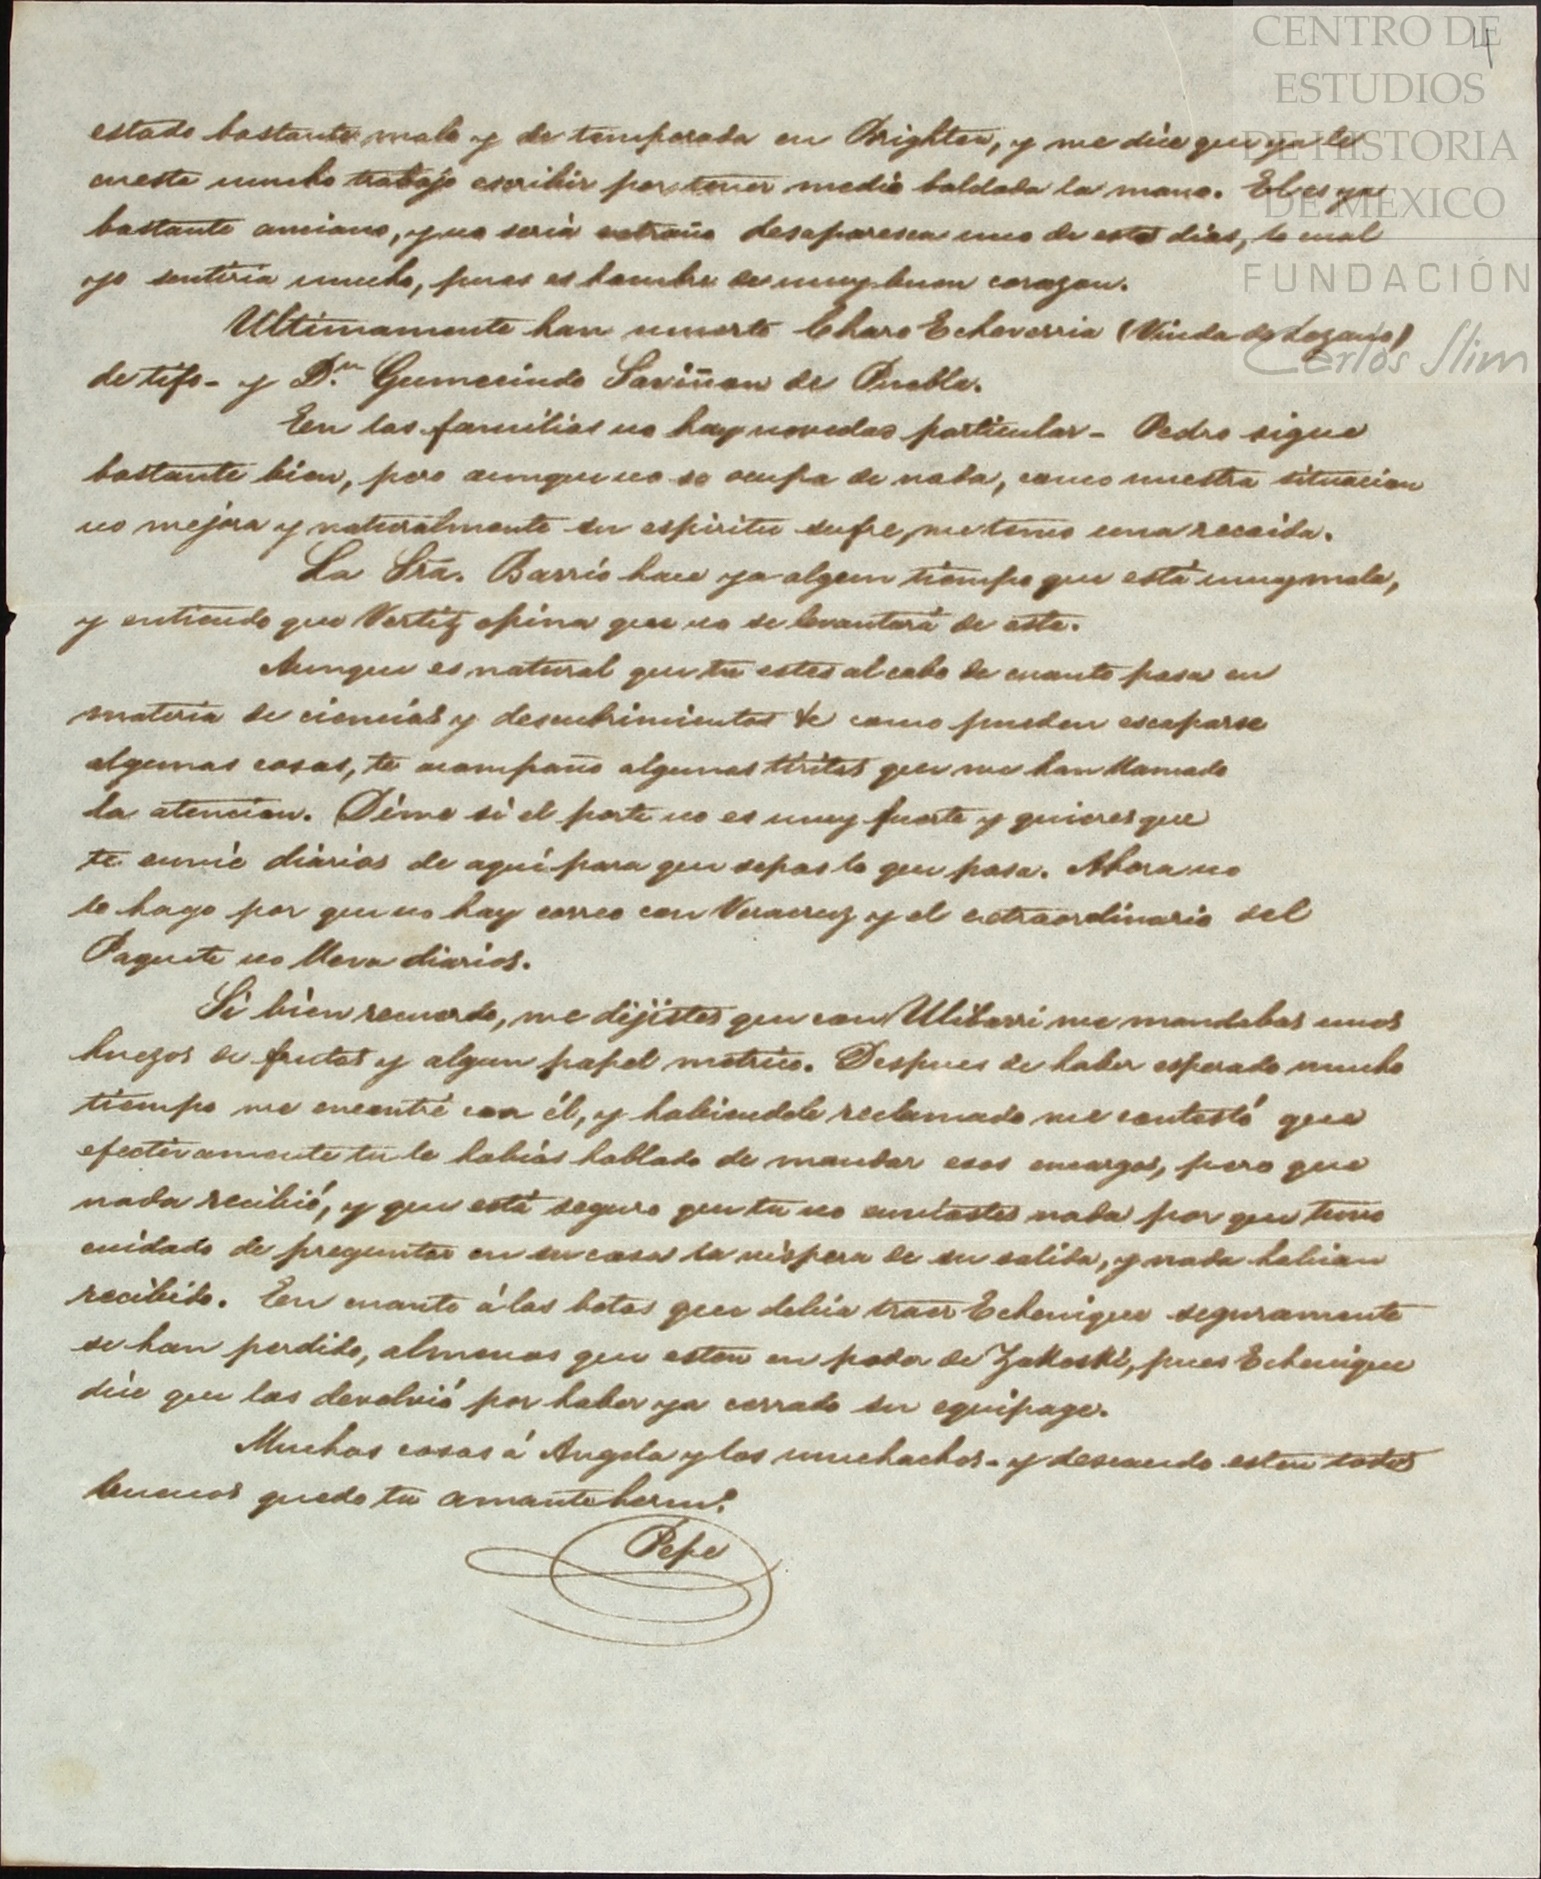 CENTRO DE
ESTUDIOS
DE HISTORIA
DE MÉXICO
FUNDACIÓN
Carlos Slim
4
estado bastante malo y de temporada en Brighton, y me dice que ya le
cuesta mucho trabajo escribir por tener medio baldada la mano. El es ya
bastante anciano, y no seria estraño desaparesca uno de estos dias, lo cual
yo sentiria mucho, pues es hombre de muy buen corazon.
Ultimamente han muerto Charo Echeverria (Viuda de Lozano)
de tifo - y D.n Gumecindo Saviñon de Puebla.
En las familias no hay novedad particular - Pedro sigue
bastante bien, pero aunque no se ocupa de nada, como nuestra situacion
no mejora y naturalmente su espiritu sufre, me temo una recaida.
La Sra. Barrio hace ya algun tiempo que está muy mala,
y entiendo que Vertiz opina que no se levantará de esta.
Aunque es natural que tu estes al cabo de cuanto pasa en
materia de ciencias y descubrimientos &c como pueden escaparse
algunas cosas, te acompaño algunas tiritas que me han llamado
la atencion. Dime si el porte no es muy fuerte y quieres que
te envie diarios de aquí para que sepas lo que pasa. Ahora no
lo hago por que no hay correo con Veracruz y el extraordinario del
Paquete no lleva diarios.
Si bien recuerdo, me dijistes que con Ulibarri me mandabas unos
huezos de frutas y algun papel metrico. Despues de haber esperado mucho
tiempo me encontré con él, y habiendole reclamado me contestó que
efectivamente tu le habias hablado de mandar esos encargos, pero que
nada recibió, y que está seguro que tu no enviastes nada por que tuvo
cuidado de preguntar en su casa la vispera de su salida, y nada habian
recibido. En cuanto á las botas que debia traer Echenique seguramente
se han perdido, almenos que esten en poder de Zakoski, pues Echenique
dice que las devolvió por haber ya cerrado su equipage.
Muchas cosas á Angela y los muchachos - y deseando esten todos
buenos quedo tu amante herm.o
Pepe